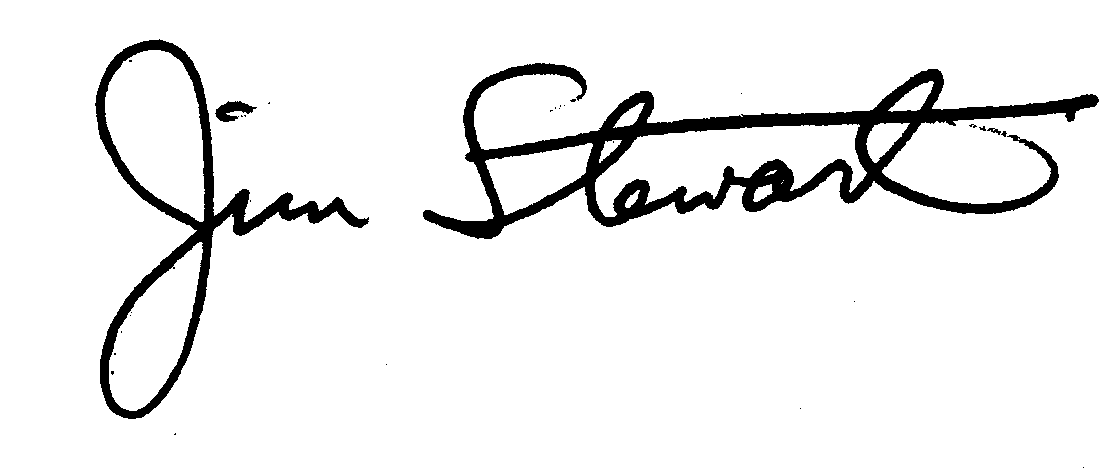 Jim Stewart